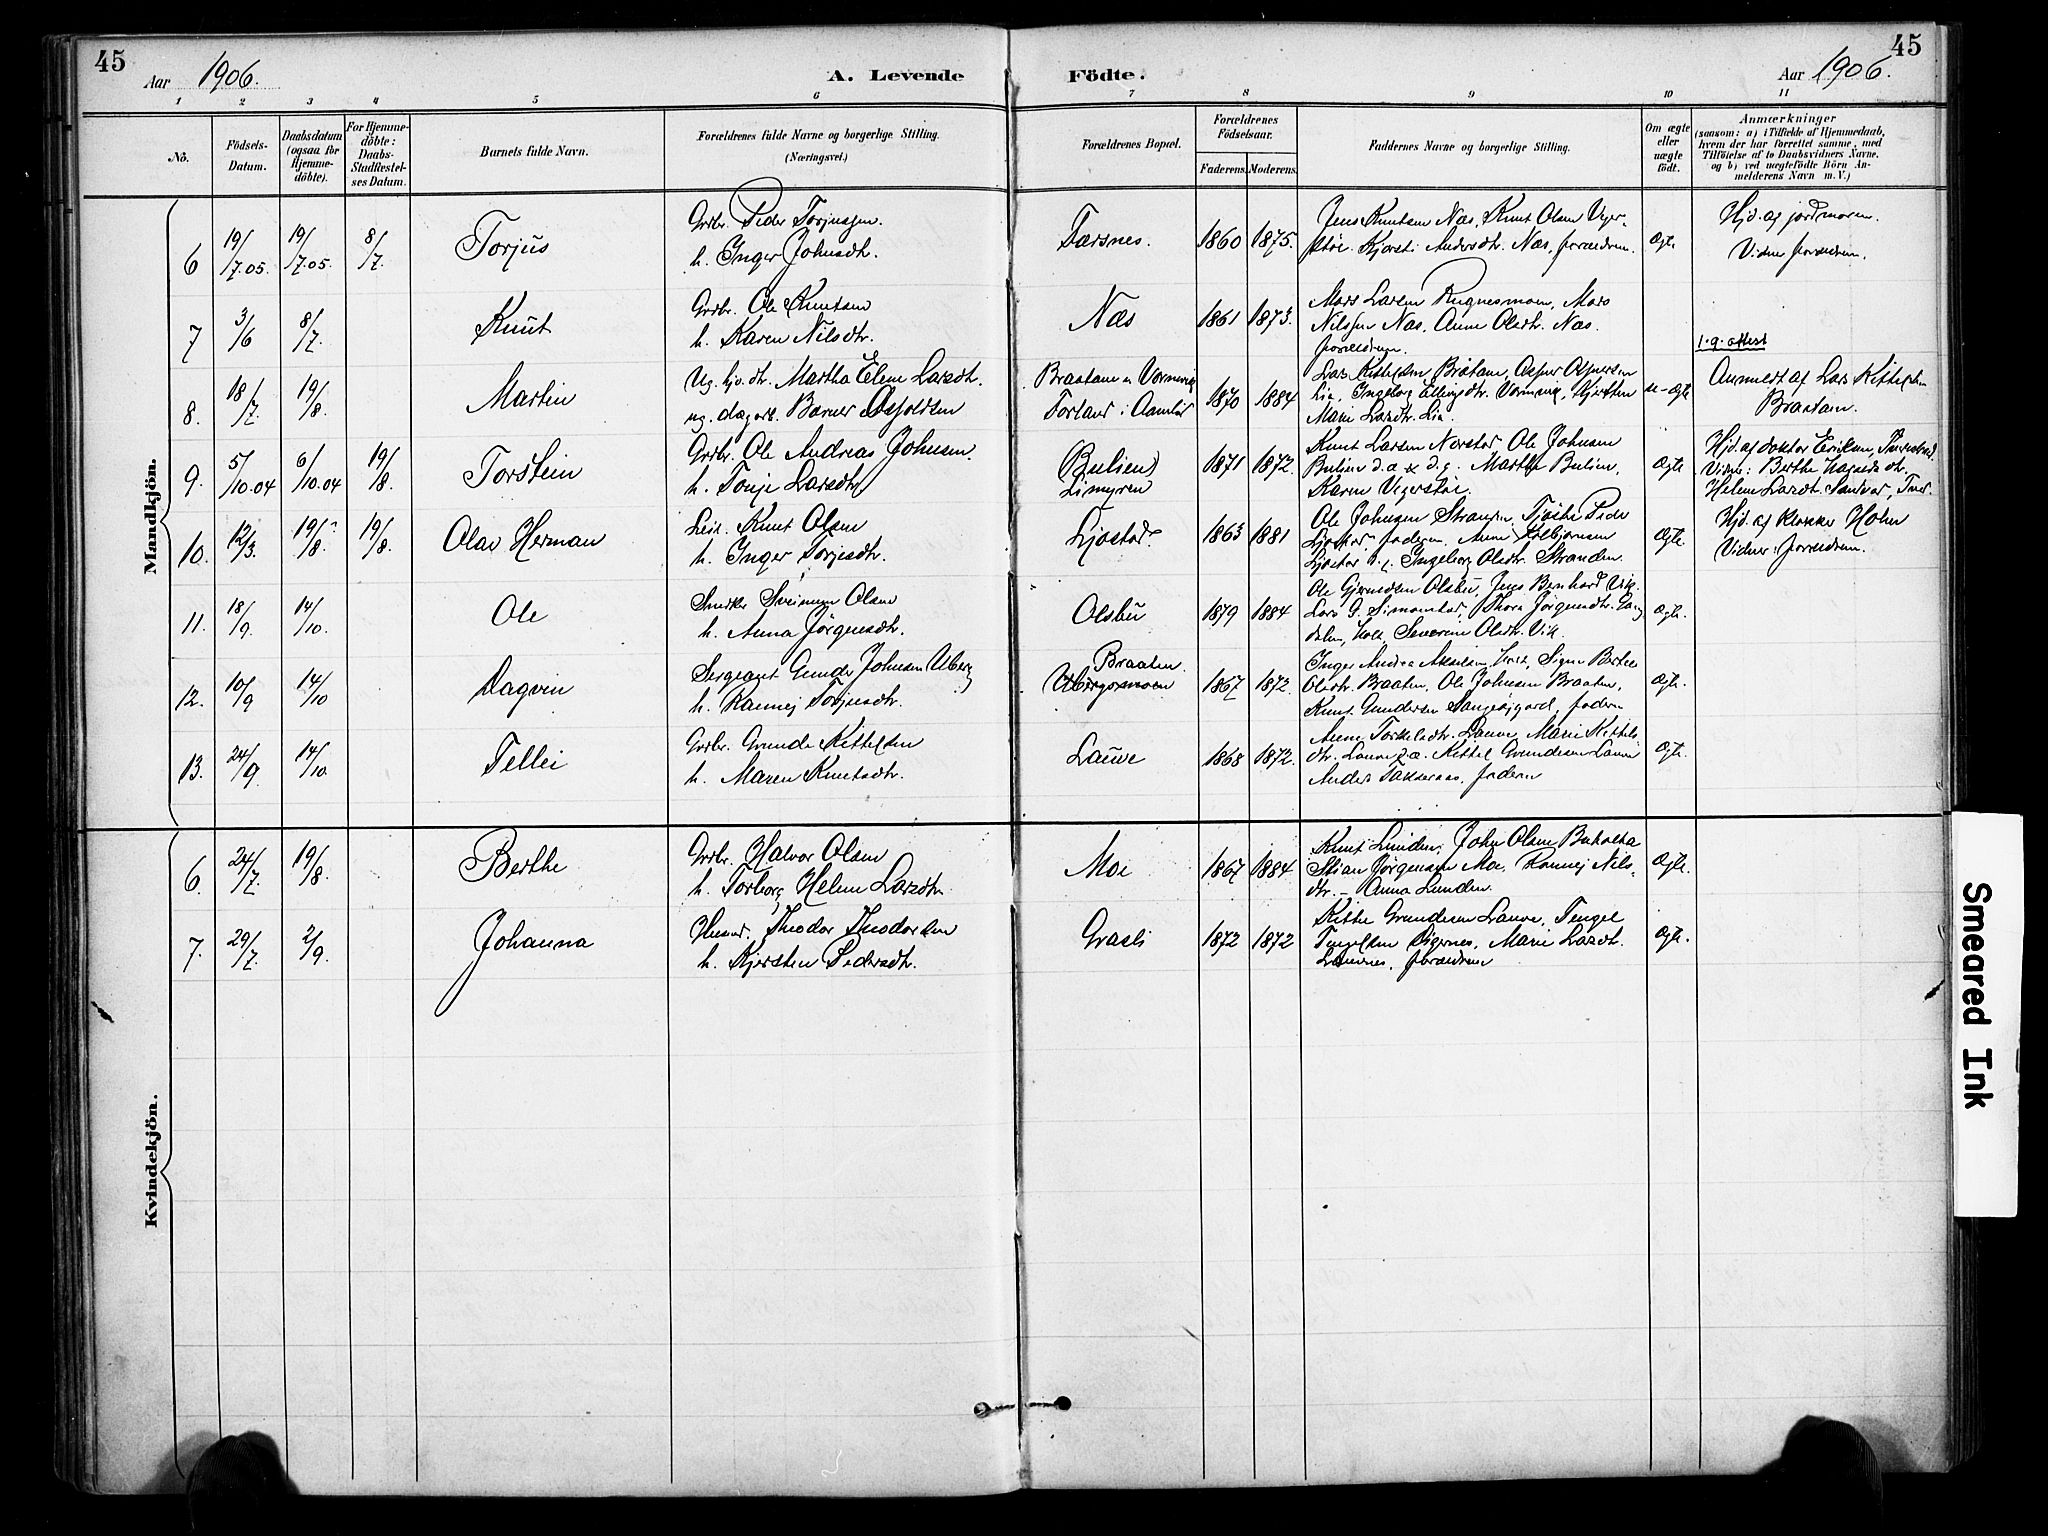 45
Aar 1906.
A. Levende
Födte.
Aar 1906.
45
1 2 3 4 5 6 7 8 9 10 11
No.
Födsels-Datum.
Daabsdatum (ogsaa for Hjemme-döbte).
For Hjemme-döbte: Daabs-Stadfestel-ses Datum.
Barnets fulde Navn.
Forældrenes fulde Navne og borgerlige Stilling.
(Næringsvei.)
Forældrenes Bopæl.
Forældrenes Födselsaar.
Faderens. Moderens.
Faddernes Navne og borgerlige Stilling.
Om ægte eller uægte födt.
Anmærkninger
(saasom: a) i Tilfælde af Hjemmedaab, hvem der har forrettet samme, med Tilföielse af to Daabsvidners Navne, og b) ved uægtefödte Börn Anmelderens Navn m. V.)
Mandkjön.
6 19/7.05. 19/7.05. 8/7 Torjus
Grbr. Peder Torjussen.
h. Inger Johnsdtr.
Færsnes. 1860 1875.
Jens Knutsen Næs, Knut Olsen Veger-
støe. Kjersti Andersdtr. Næs, forældrene.
Ægte
Hjd. af jordmoren.
Vidne forældrene.
7 3/6 8/7. Knut
Grbr. Ole Knutsen
h. Karen Nilsdtr.
Næs 1861 1873.
Mars Larsen Rugnesmoen, Mars
Nilssen Næs, Anne Olsdtr. Næs.
forældrene.
1.9. attest
8. 18/7. 19/8. Martin
Ug. hjv. dtr. Martha Elene Larsdtr.
ug. dagarb. Barner Asjoldsen
Braatane
Torland i Aamlid
1870 1884
Lars Kittelsen Bråtane, Asper Aspersen
Lia, Ingeborg Ellingsdtr. Vormevig, Kjersten
Marie Larsdtr. Lia.
u-ægte
Anmeldt af Lars Kittelsen
Braatane.
9. 5/10.04 6/10.04 19/8. Torstein
Grbr. Ole Andreas Johnsen
h. Tonje Larsdtr
(Bulien)
Limyren
1871 1872.
Knut Larsen Nørstad Ole Johnsen
Bulien d.æ & d.y. Marthe Bulien,
Karen Vegerstøl.
Ægte
Hjd. af doktor Eriksen,
Vidne: Berthe
Helene Larsdtr.
10. 12/3. 19/8. 19/8. Olav Herman
Leil. Knut Olsen
h. Inger Torjusdtr.
Ljøstad 1863 1881
Ole Johnsen
Ljøstad, faderen. Anne
Ljøstad d.y. Ingeborg Olsdtr. Stranden.
Ægte.
Hjd. af klokker Holm
Vidner: forældrene.
11. 18/9. 14/10. Ole
Snedker Sveinung Olsen
h. Anna Jörgensdtr.
Olsbu 1879 1884
Ole Gjermundsen Olsbu, Jens Bernhard Vik.
Lars G. Simonstad, Thora Jörgensdtr.
dalen, Severine Olsdtr. Vik.
Ægte.
12. 10/9 14/10 Dagvin
Sergeant Gunder Johnsen Uberg
h. Rannej Torjusdtr.
Braaten.
Ubergsmoen
1867 1872.
Inger Andrea Akselsen, Signe Bertea
Olsdtr. Braaten, Ole Johnsen Braaten,
Knut Gundersen Songesigard, faderen
Ægte.
13. 24/9. 14/10 Tellei
Grbr. Grunde Kittelsen
h. Maren Knutsdtr.
Lauve 1868 1872.
Anne Torkelsdtr. Lauve, Marie Kittels-
dtr. Lauve Kittel Grundesen Lauve
Anders Takseraas, faderen
Ægte.
Kvindekjön.
6. 24/7. 19/8. Berthe
Grbr. Halvor Olsen
h. Torborg Helene Larsdtr.
Moe 1867 1884
Knut Lunden, John Olsen
Stian Jörgensen Moe, Rannej Nils-
dtr. - Anna Lunden.
Ægte.
7. 29/7. 2/9. Johanna
Husmd. Theodor Theodorsen
h. Kjersten Pedersdtr.
Grasli 1872 1872
Kittel Grundesen Lauve, Tengel
Tengelsen Sigernes, Marie Larsdtr.
forældrene
Ægte.
Smeared Ink